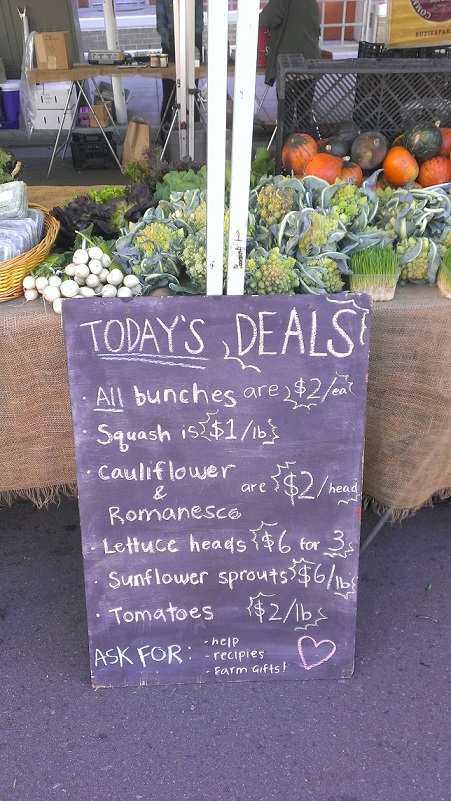 TODAY'S DEALS
· All bunches are $2/ea
· Squash is $1/lb
· Cauliflower
&
Romanesco are $2/head
· Lettuce heads $6 for 3
· Sunflower sprouts $6/lb
· Tomatoes $2/lb
ASK FOR:
- help
- recipies
- Farm Gifts!